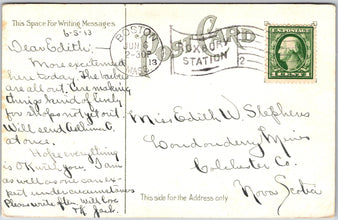 This Space For Writing Messages
6-5-13
Dear Edith:
More excitement
here today. The babies
are all out. Are making
things kind of lively
for shops not yet out.
Will send
at once.
Hope everything
is O.K. with you. I am
as well as one can ex-
pect under circumstances
Please write often, with love
POST CARD
BOSTON
JUN 6
2-30P
13
MASS.
ROXBURY
STATION
2
1 CENT 1
Miss Edith W Stephens
Londonderry Mines
Colchester Co.
Nova Scotia
This side for the Address only